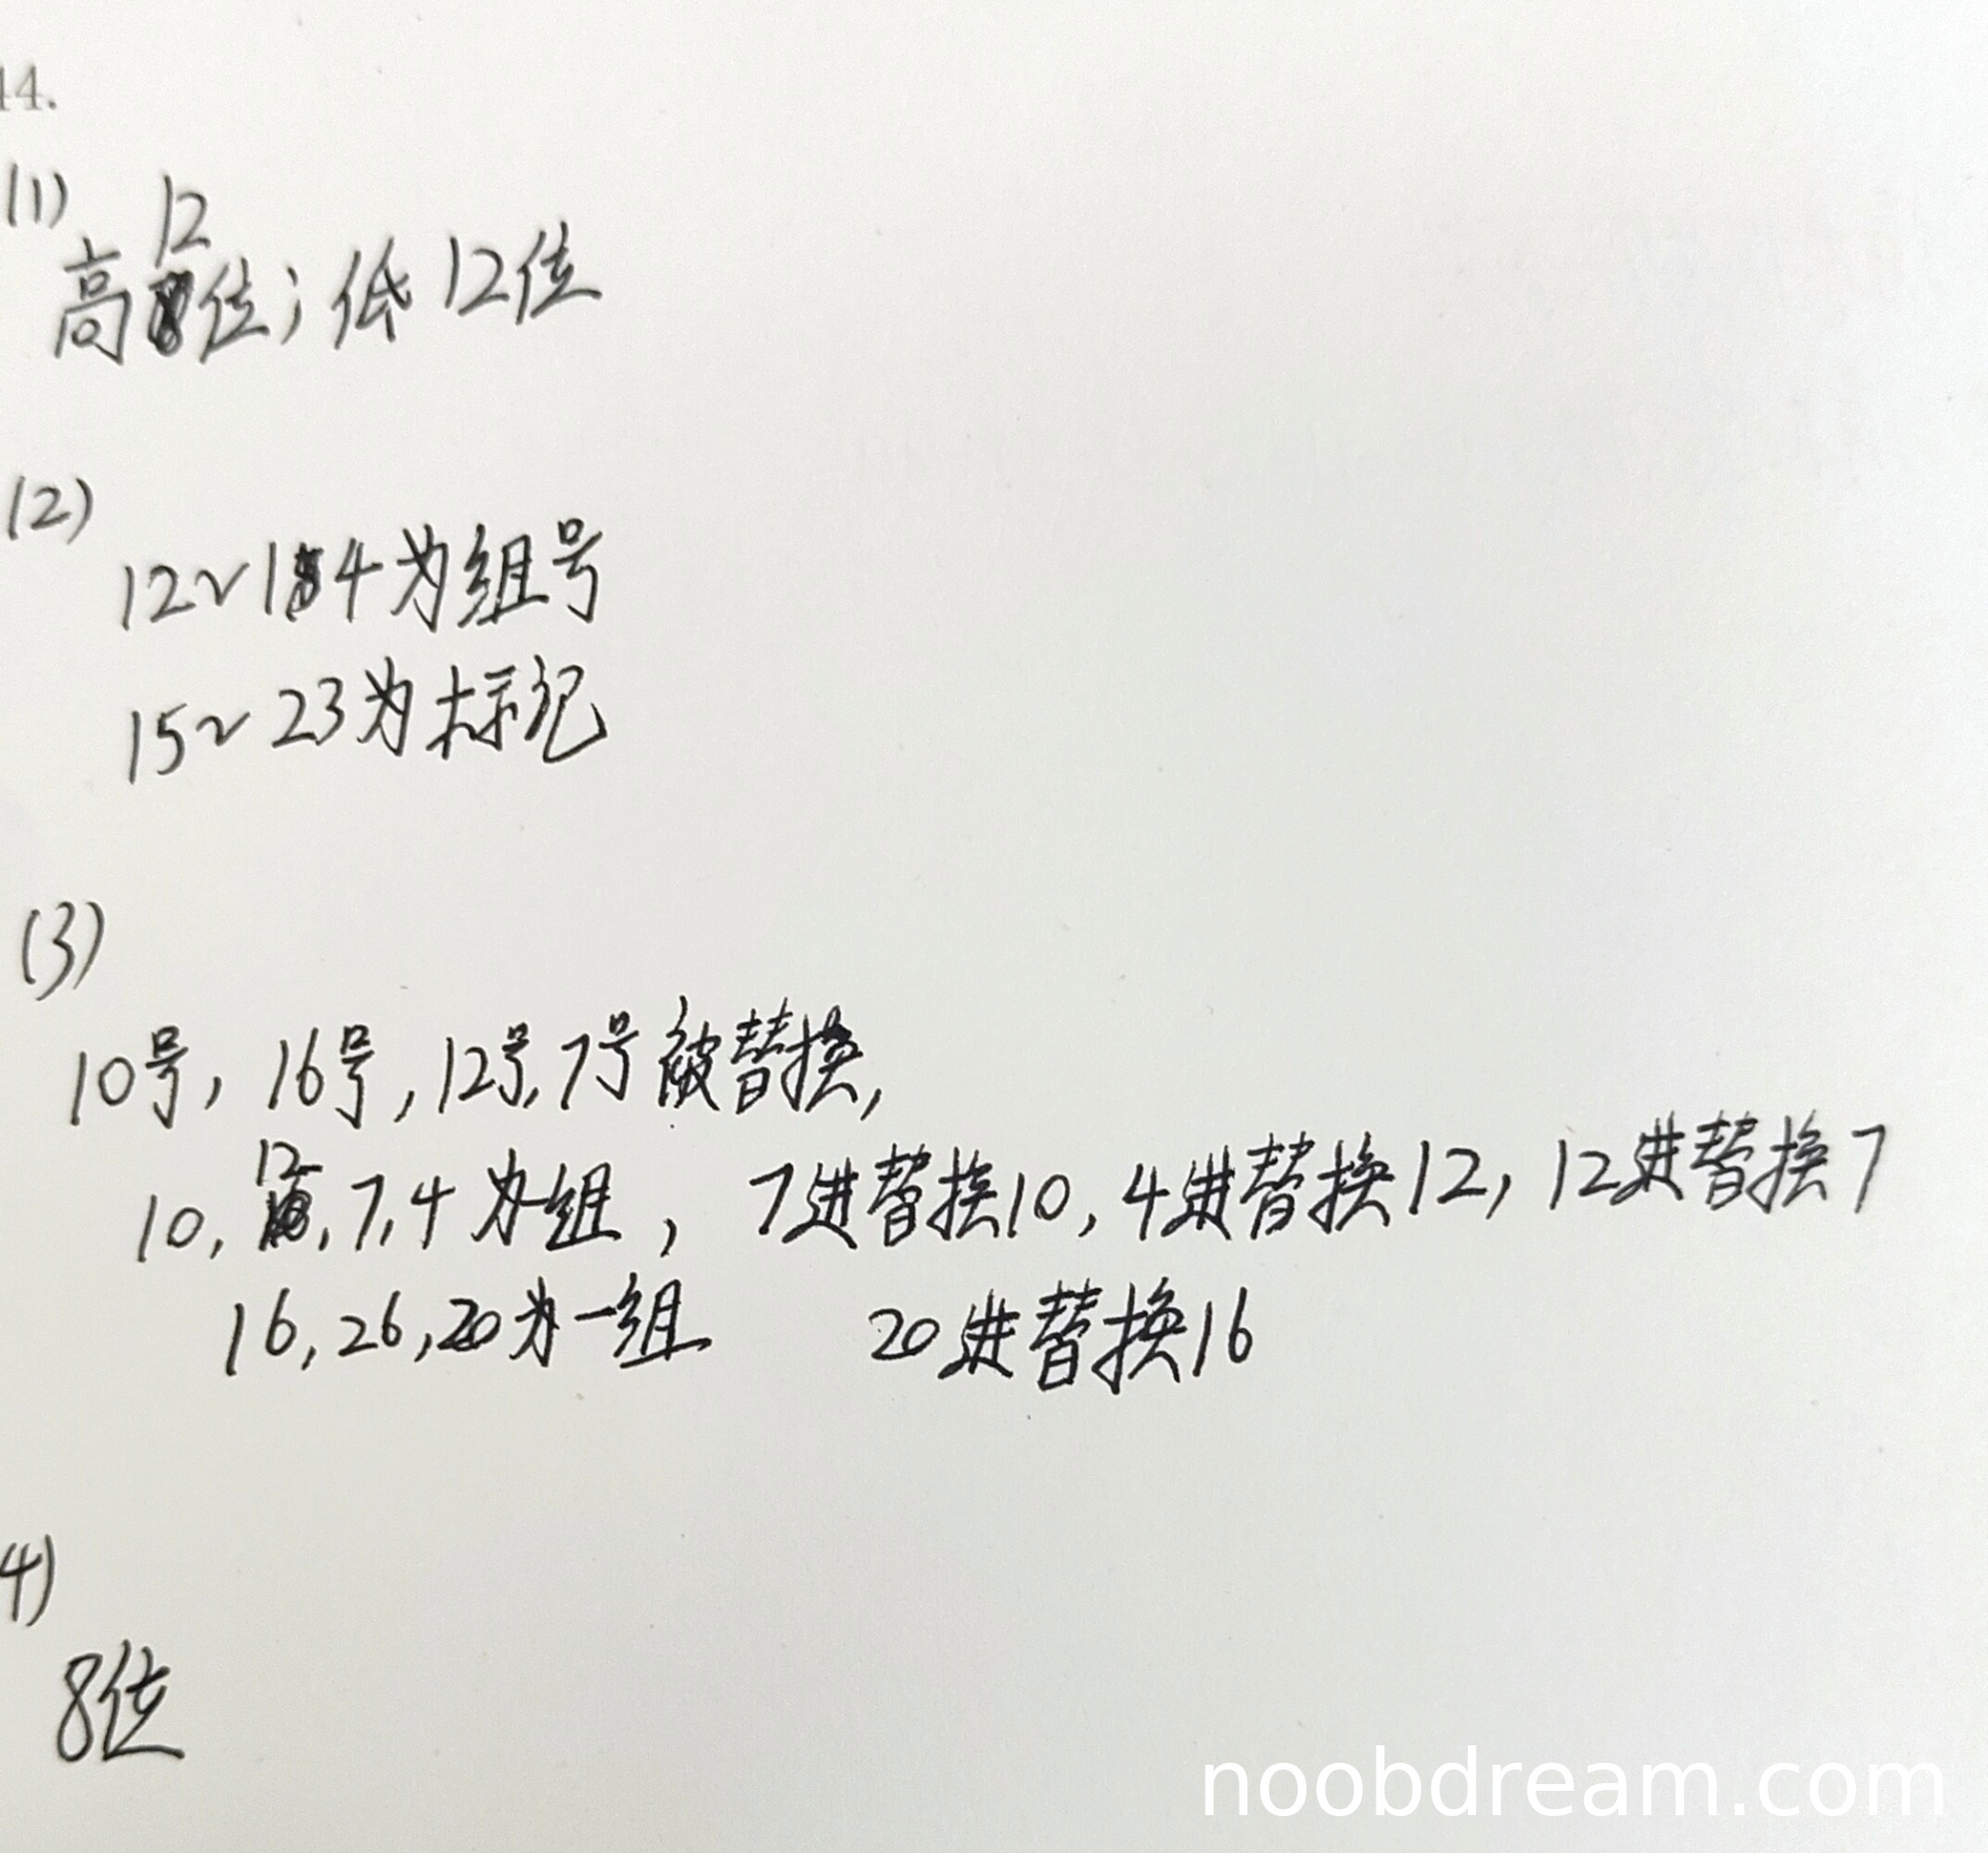 44.
(1)
高12位；低12位
(2)
12~14为组号
15~23为标记
(3)
10号，16号，12号，7号被替换，
10，12，7，4为一组，7进替换10，4进替换12，12进替换7
16，26，20为一组 20进替换16
4)
8位
noobdream.com